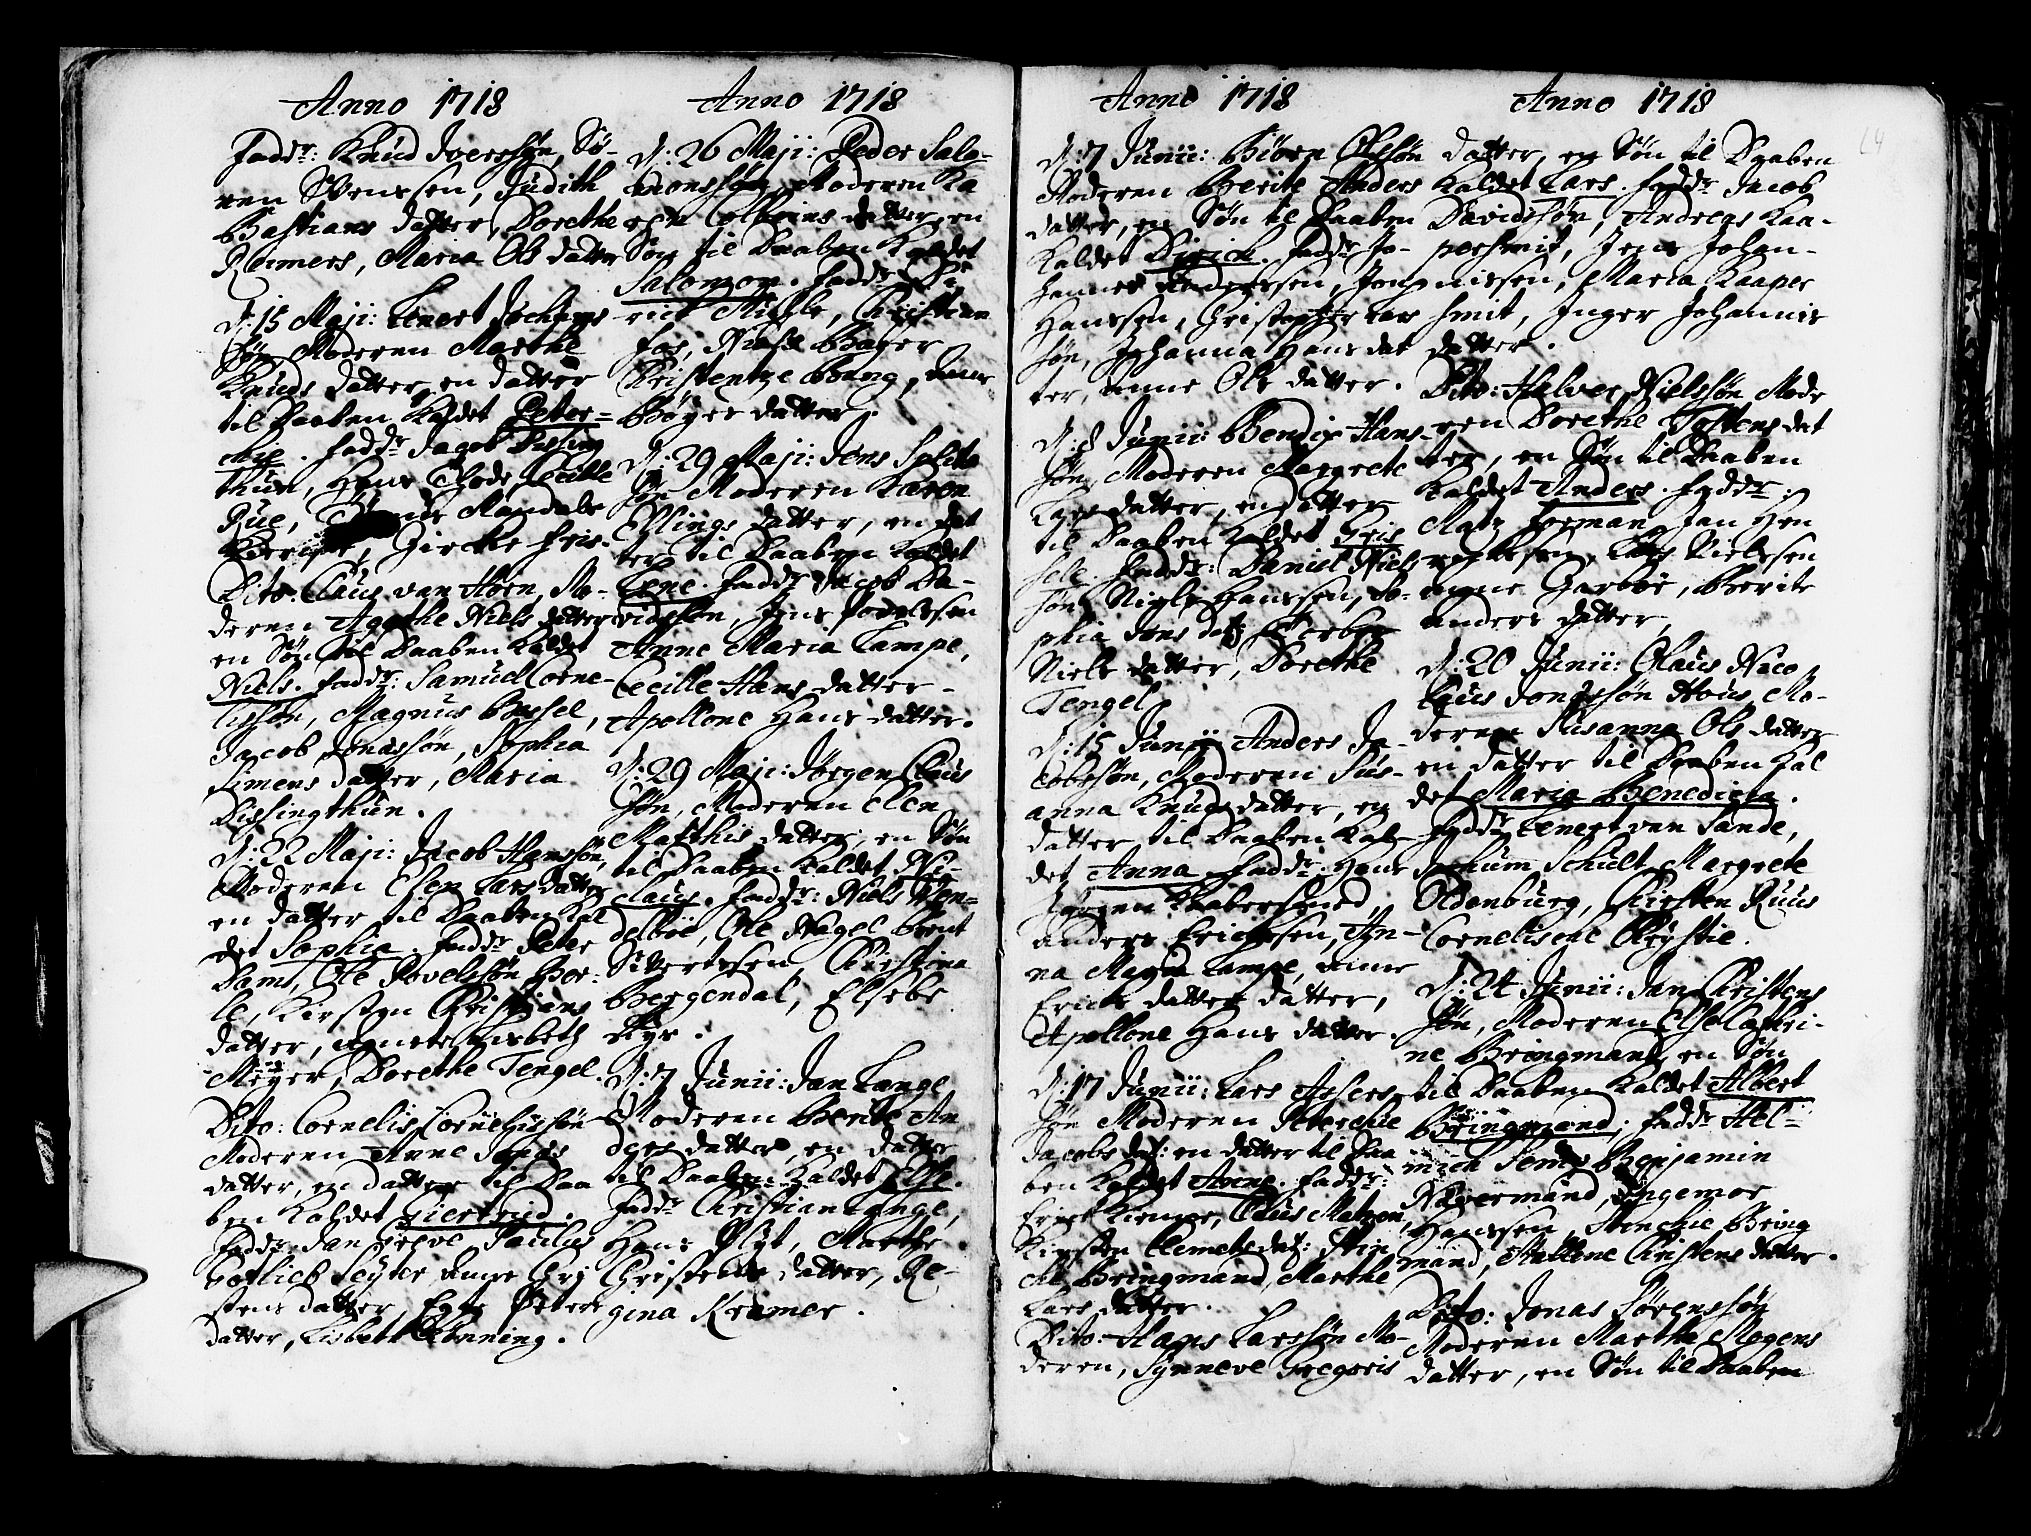 Anno 1718
Faddr: Knud Iverssøn, Sø-
ren Svenssen, Judith
Bastians datter, Dorethe
Reimers, Maria Ols datter
d: 15 Maji: Lenert Jochums
søn Moderen Marthe
Knuds datter, en datter
til Daaben kaldet Peter-
chie. Faddr Jacob Dissing
thun, Hans Clode, Cecille
Rue, Mandals
Giercke Fris.
Dito: Claus van Hoen, Mo-
deren Agathe Niels datter
en Søn til Daaben kaldet
Niels. Faddr: Samuel Corne-
lissøn, Magnus Bessel,
Jacob Jonassøn, Sophia
Simens datter, Maria
Dissingthun.
d: 22 Maji: Jacob Hanssøn,
Moderen Elsen Lars datter
en datter til Daaben kal
det Sophia. Faddr Peter
Dam, Ole Povelssøn Bor-
le, Kirsten Christians
datter, Agnete Lisbeth
Meyer, Dorethe Tengel.
Dito: Cornelis Corneliussøn
Moderen Anne Jens
datter, en datter til Daa
ben kaldet Giertrud.
Faddr Jan Greve Paulus
Gotlieb Seyer Anne Chri
stens datter, Peters
datter, Lisbeth Rønning.
Anno 1718
d: 26 Maji: Peder Salo-
monssøn, Moderen Ka
ren Colbeins datter, en
Søn til Daaben kaldet
Salomon. Faddr Di
rich Michle, Christian
Fos, Niels Bager
Kristentze Bang, Anne
Bøyes datter.
d: 29 Maji: Jens Salita
søn Moderen Karen
Ellings datter, en dat
ter til Daaben kaldet
Lene. Faddr Jacob Da-
vidssøn, Jens Povelssen
Anne Maria Lampe,
Cecille Hans datter
Apollone Hans datter.
d: 29 Maji: Jørgen Claus
søn, Moderen Elen
Matthis datter, en Søn
til Daaben kaldet Nic-
claus. Faddr: Niels Wen-
delboe, Ole Nagel Bent
Sivertssen, Christina
Bergendal, Elsebe
Rys.
d: 7 Junii: Jan Lange
Moderen Berite An
ders datter, en datter
til Daaben kaldet Else.
Faddr Christian Lange,
Hans Plyt, Marthe
Christens datter, Re-
gina Kramer.
Anno 1718
d: 7 Junii: Biørn Olssøn
Moderen Berite Anders
datter, en Søn til Daaben
kaldet Dirich. Faddr Jo-
hannes Anderssen, Jens
Hanssen, Christopher Lars
søn, Johanna Hans dat
ter, Anne Ols datter.
d: 8 Junii: Bendix Hans-
søn, Moderen Margrete
Lars datter, en datter
til Daaben kaldet Gris
sele. Faddr: Daniel Niels
søn Niels Hanssen, So-
phia Jens datt:
Niels datter, Dorethe
Tengel.
d: 15 Junii Anders Ja-
cobssøn, Moderen Sus-
anna Knuds datter, en
datter til Daaben kal-
det Anna. Faddr: Hans
Jørgen Kaabersmed,
Anders Erichssen, An-
na Maria Lampe, Anne
Erichs datter datter,
Apollone Hans datter.
d: 17 Junii: Lars Assers-
søn Moderen Peterchie
Jacobs dat: en datter til Daa
ben kaldet Anne. Faddr:
Erich Kremer, Claus Matzon,
Kirsten Clemets dat: Stin
che Bringmand, Marthe
Lars datter.
Dito: Hans Larssøn Mo-
deren, Synneve Gregoris
Anno 1718
datter, en Søn til Daaben
kaldet Lars. Faddr Jacob
Davidssøn, Andreas Kaa-
persmit, Jens Johan-
nissen, Maria Kaaper
smit, Inger Johannis
datter.
Dito: Halvor Nielssøn Mode
ren Dorethe Tostens dat
ter, en Søn til Daaben
kaldet Anders. Faddr:
Matz Forman, Jan Hen
richssen, Lars Nielssen
Magne Garboe, Berite
Anders datter,
d: 20 Junii: Claus Nico
laus Jonassøn Hous, Mo-
deren Susanna Ols datter
en datter til Daaben kal
det Maria Benedicta.
Faddr Lenert van Sande,
Jochum Schult, Margrete
Oldenburg, Kirsten Ruus
Cornelisene Chrystie.
d: 24 Junii: Jan Christens
søn, Moderen Else Cathri-
ne Bringmand, en Søn
til Daaben kaldet Albert
Bringmand; Faddr Hel-
mich Benjamin
Navermand, Ingemor
Hanssen, Stenchie Bring
mand, Mattene Christens datter.
Dito: Jonas Sørenssøn
Moderen Martha Mogens
datter, en Søn til Daaben
64